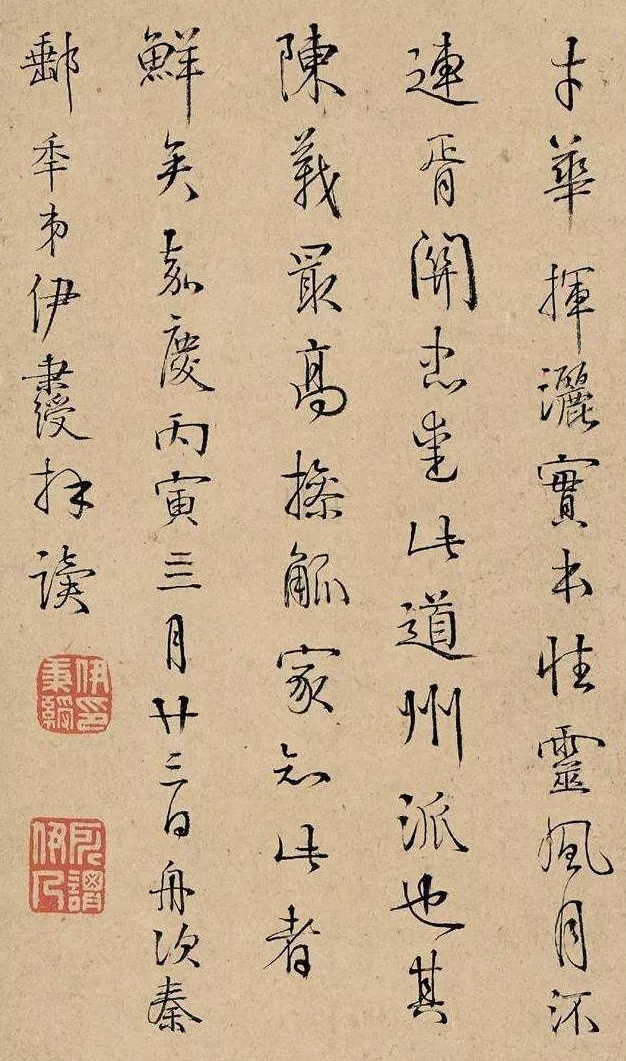 才華揮灑實本性靈風月流
連胥關忠愛此道州派也其
陳義最高操觚家知此者
鮮矣嘉慶丙寅三月廿三日舟次秦
郵年弟伊秉綬拜讀
伊秉綬印